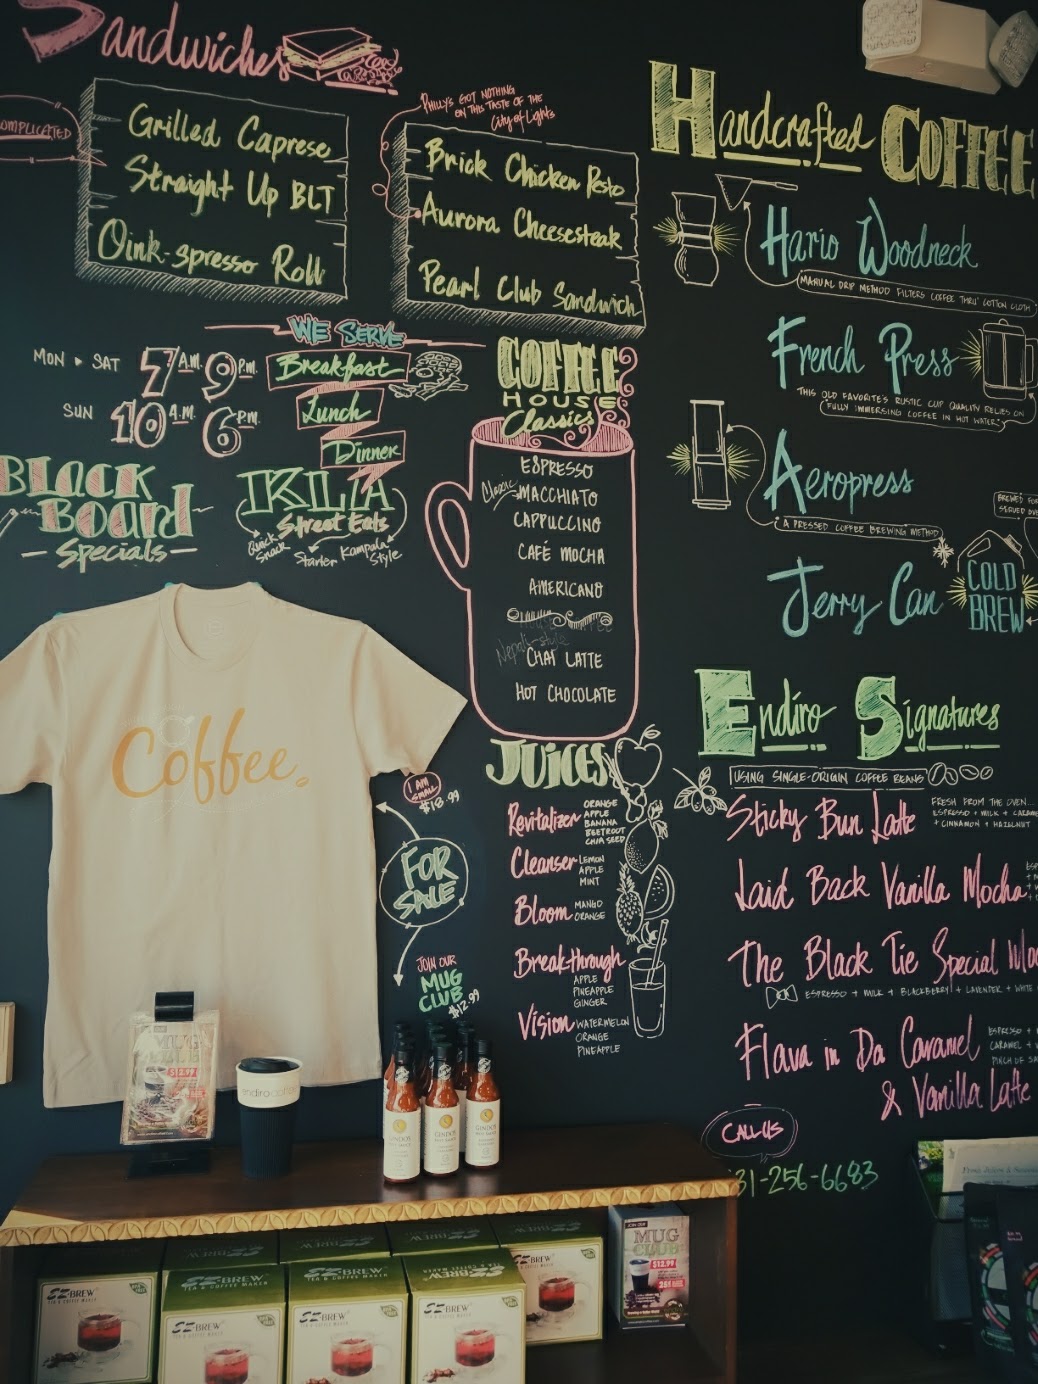 Sandwiches
Grilled Caprese
Straight Up BLT
Oink-spresso Roll
PHILLY'S GOT NOTHING
ON THIS TASTE OF THE
City of Lights
Brick Chicken Pesto
Aurora Cheesesteak
Pearl Club Sandwich
Handcrafted COFFEE
Hario Woodneck
MANUAL DRIP METHOD FILTERS COFFEE THRU' COTTON CLOTH
French Press
THIS OLD FAVORITE'S RUSTIC CUP QUALITY RELIES ON
FULLY IMMERSING COFFEE IN HOT WATER
Aeropress
A PRESSED COFFEE BREWING METHOD
Jerry Can
COLD
BREW
MON ▸ SAT 7 A.M. 9 P.M.
SUN 10 A.M. 6 P.M.
WE SERVE
Breakfast
Lunch
Dinner
BLACK
BOARD
Specials
Street Eats
Quick
Snack
Starter
Kampala
Style
COFFEE
HOUSE
Classics
ESPRESSO
Classic MACCHIATO
CAPPUCCINO
CAFÉ MOCHA
AMERICANO
Nepali-style
CHAI LATTE
HOT CHOCOLATE
JUICES
Revitalizer ORANGE
APPLE
BANANA
BEETROOT
CHIA SEED
Cleanser LEMON
APPLE
MINT
Bloom MANGO
ORANGE
Break-through
APPLE
PINEAPPLE
GINGER
Vision WATERMELON
ORANGE
PINEAPPLE
Endiro Signatures
USING SINGLE-ORIGIN COFFEE BEANS
Sticky Bun Latte
FRESH FROM THE OVEN...
ESPRESSO + MILK +
+ CINNAMON + HAZELNUT
Laid Back Vanilla Mocha
The Black Tie Special
ESPRESSO + MILK + BLACKBERRY + LAVENDER + WHITE
Flava in Da Caramel
& Vanilla Latte
ESPRESSO +
CARAMEL +
PINCH OF
CALL US
31-256-6683
Coffee.
I AM
SMALL
$18.99
FOR
SALE
JOIN OUR
MUG
CLUB
$12.99
MUG
CLUB
$12.99
endiro coffee
GINDO'S
GINDO'S
GINDO'S
EZBREW
TEA & COFFEE MAKER
EZBREW
TEA & COFFEE MAKER
EZBREW
TEA & COFFEE MAKER
EZBREW
EZBREW
EZBREW
EZBREW
MUG
CLUB
$12.99